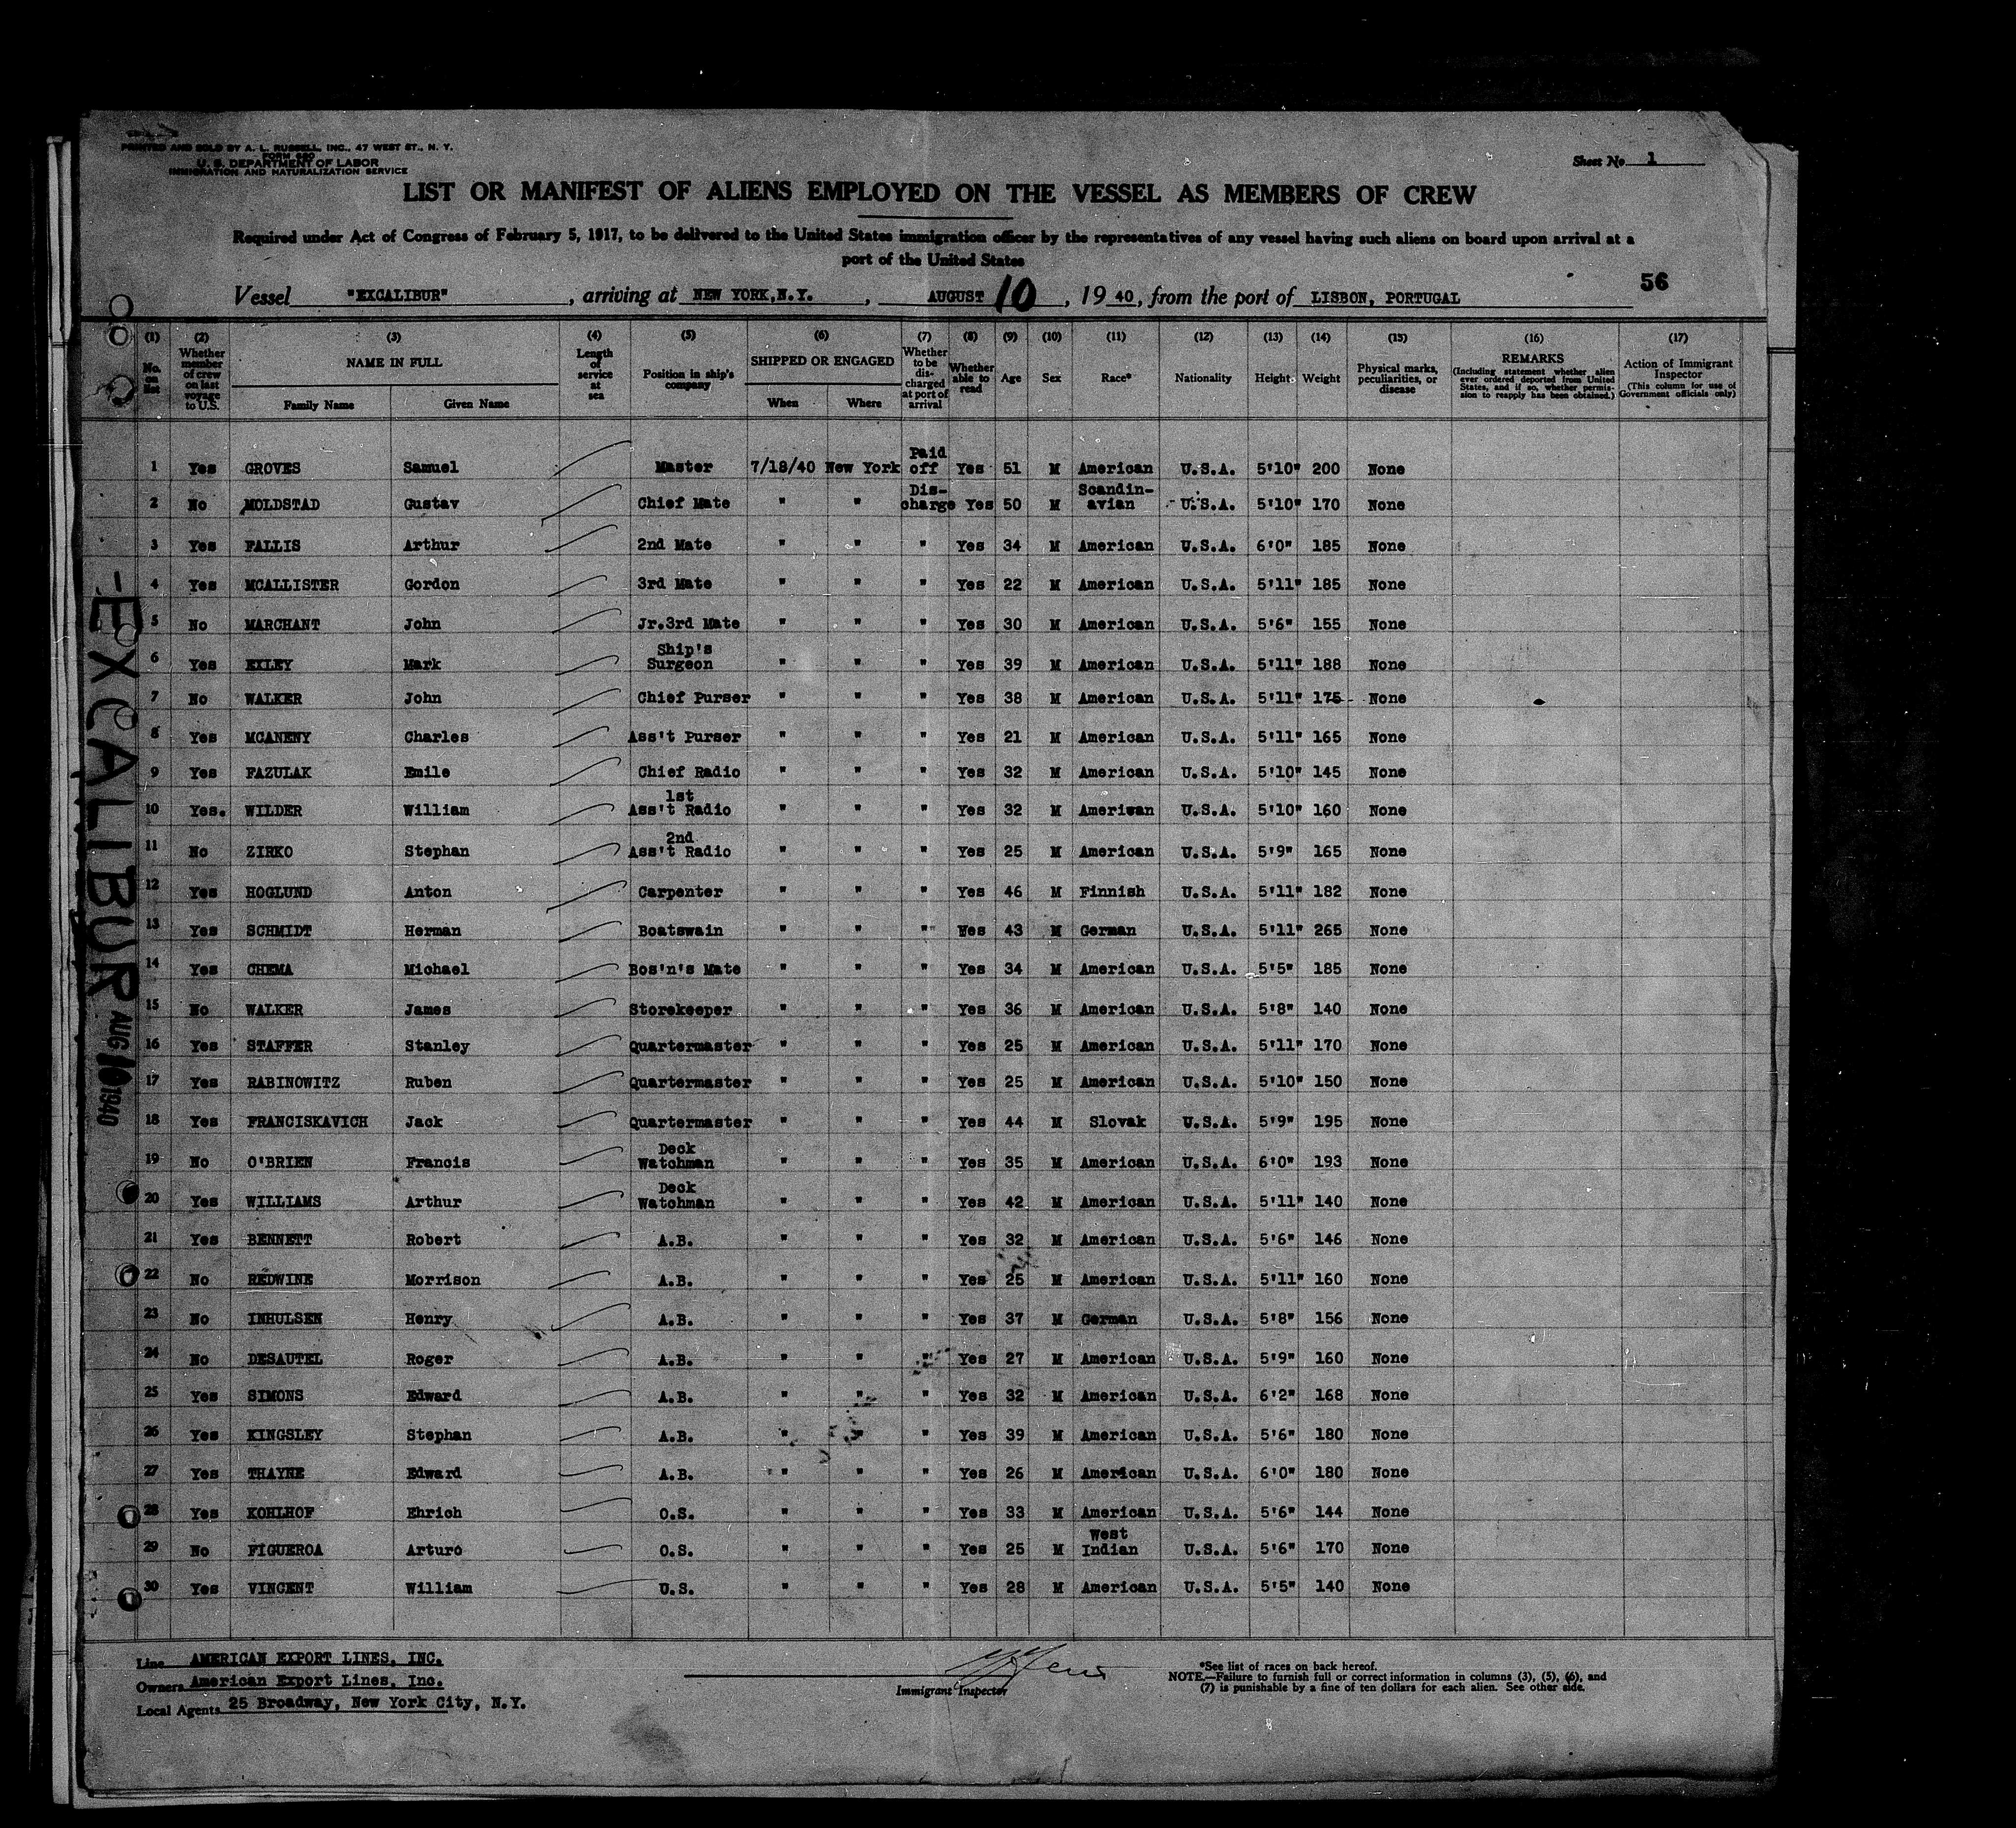 PRINTED AND SOLD BY A. L. RUSSELL, INC., 47 WEST ST., N. Y.
FORM 680
U. S. DEPARTMENT OF LABOR
IMMIGRATION AND NATURALIZATION SERVICE
Sheet No. 1
LIST OR MANIFEST OF ALIENS EMPLOYED ON THE VESSEL AS MEMBERS OF CREW
Required under Act of Congress of February 5, 1917, to be delivered to the United States immigration officer by the representatives of any vessel having such aliens on board upon arrival at a
port of the United States
56
Vessel "EXCALIBUR", arriving at NEW YORK,N.Y., AUGUST 10, 19 40, from the port of LISBON, PORTUGAL
(1) No. on list
(2) Whether member of crew on last voyage to U.S.
(3) NAME IN FULL Family Name Given Name
(4) Length of service at sea
(5) Position in ship's company
(6) SHIPPED OR ENGAGED When Where
(7) Whether to be discharged at port of arrival
(8) Whether able to read
(9) Age
(10) Sex
(11) Race*
(12) Nationality
(13) Height
(14) Weight
(15) Physical marks, peculiarities, or disease
(16) REMARKS (Including statement whether alien ever ordered deported from United States, and if so, whether permission to reapply has been obtained.)
(17) Action of Immigrant Inspector (This column for use of Government officials only)
1 Yes GROVES Samuel Master 7/18/40 New York Paid off Yes 51 M American U.S.A. 5'10" 200 None
2 No MOLDSTAD Gustav Chief Mate " " Discharge Yes 50 M Scandin-avian U.S.A. 5'10" 170 None
3 Yes FALLIS Arthur 2nd Mate " " " Yes 34 M American U.S.A. 6'0" 185 None
4 Yes MCALLISTER Gordon 3rd Mate " " " Yes 22 M American U.S.A. 5'11" 185 None
5 No MARCHANT John Jr.3rd Mate " " " Yes 30 M American U.S.A. 5'6" 155 None
6 Yes EXLEY Mark Ship's Surgeon " " " Yes 39 M American U.S.A. 5'11" 188 None
7 No WALKER John Chief Purser " " " Yes 38 M American U.S.A. 5'11" 175 None
8 Yes MCANENY Charles Ass't Purser " " " Yes 21 M American U.S.A. 5'11" 165 None
9 Yes FAZULAK Emile Chief Radio " " " Yes 32 M American U.S.A. 5'10" 145 None
10 Yes. WILDER William 1st Ass't Radio " " " Yes 32 M Ameriwan U.S.A. 5'10" 160 None
11 No ZIRKO Stephan 2nd Ass't Radio " " " Yes 25 M American U.S.A. 5'9" 165 None
12 Yes HOGLUND Anton Carpenter " " " Yes 46 M Finnish U.S.A. 5'11" 182 None
13 Yes SCHMIDT Herman Boatswain " " " Yes 43 M German U.S.A. 5'11" 265 None
14 Yes CHEMA Michael Bos'n's Mate " " " Yes 34 M American U.S.A. 5'5" 185 None
15 No WALKER James Storekeeper " " " Yes 36 M American U.S.A. 5'8" 140 None
16 Yes STAFFER Stanley Quartermaster " " " Yes 25 M American U.S.A. 5'11" 170 None
17 Yes RABINOWITZ Ruben Quartermaster " " " Yes 25 M American U.S.A. 5'10" 150 None
18 Yes FRANCISKAVICH Jack Quartermaster " " " Yes 44 M Slovak U.S.A. 5'9" 195 None
19 No O'BRIEN Francis Deck Watchman " " " Yes 35 M American U.S.A. 6'0" 193 None
20 Yes WILLIAMS Arthur Deck Watchman " " " Yes 42 M American U.S.A. 5'11" 140 None
21 Yes BENNETT Robert A.B. " " " Yes 32 M American U.S.A. 5'6" 146 None
22 No REDWINE Morrison A.B. " " " Yes 25 M American U.S.A. 5'11" 160 None
23 No INHULSEN Henry A.B. " " " Yes 37 M German U.S.A. 5'8" 156 None
24 No DESAUTEL Roger A.B. " " " Yes 27 M American U.S.A. 5'9" 160 None
25 Yes SIMONS Edward A.B. " " " Yes 32 M American U.S.A. 6'2" 168 None
26 Yes KINGSLEY Stephan A.B. " " " Yes 39 M American U.S.A. 5'6" 180 None
27 Yes THAYNE Edward A.B. " " " Yes 26 M American U.S.A. 6'0" 180 None
28 Yes KOHLHOF Ehrich O.S. " " " Yes 33 M American U.S.A. 5'6" 144 None
29 No FIGUEROA Arturo O.S. " " " Yes 25 M West Indian U.S.A. 5'6" 170 None
30 Yes VINCENT William U.S. " " " Yes 28 M American U.S.A. 5'5" 140 None
-EXCALIBUR AUG 10 1940
Line AMERICAN EXPORT LINES, INC.
Owners American Export Lines, Inc.
Local Agents 25 Broadway, New York City, N.Y.
Immigrant Inspector
*See list of races on back hereof.
NOTE.—Failure to furnish full or correct information in columns (3), (5), (6), and
(7) is punishable by a fine of ten dollars for each alien. See other side.